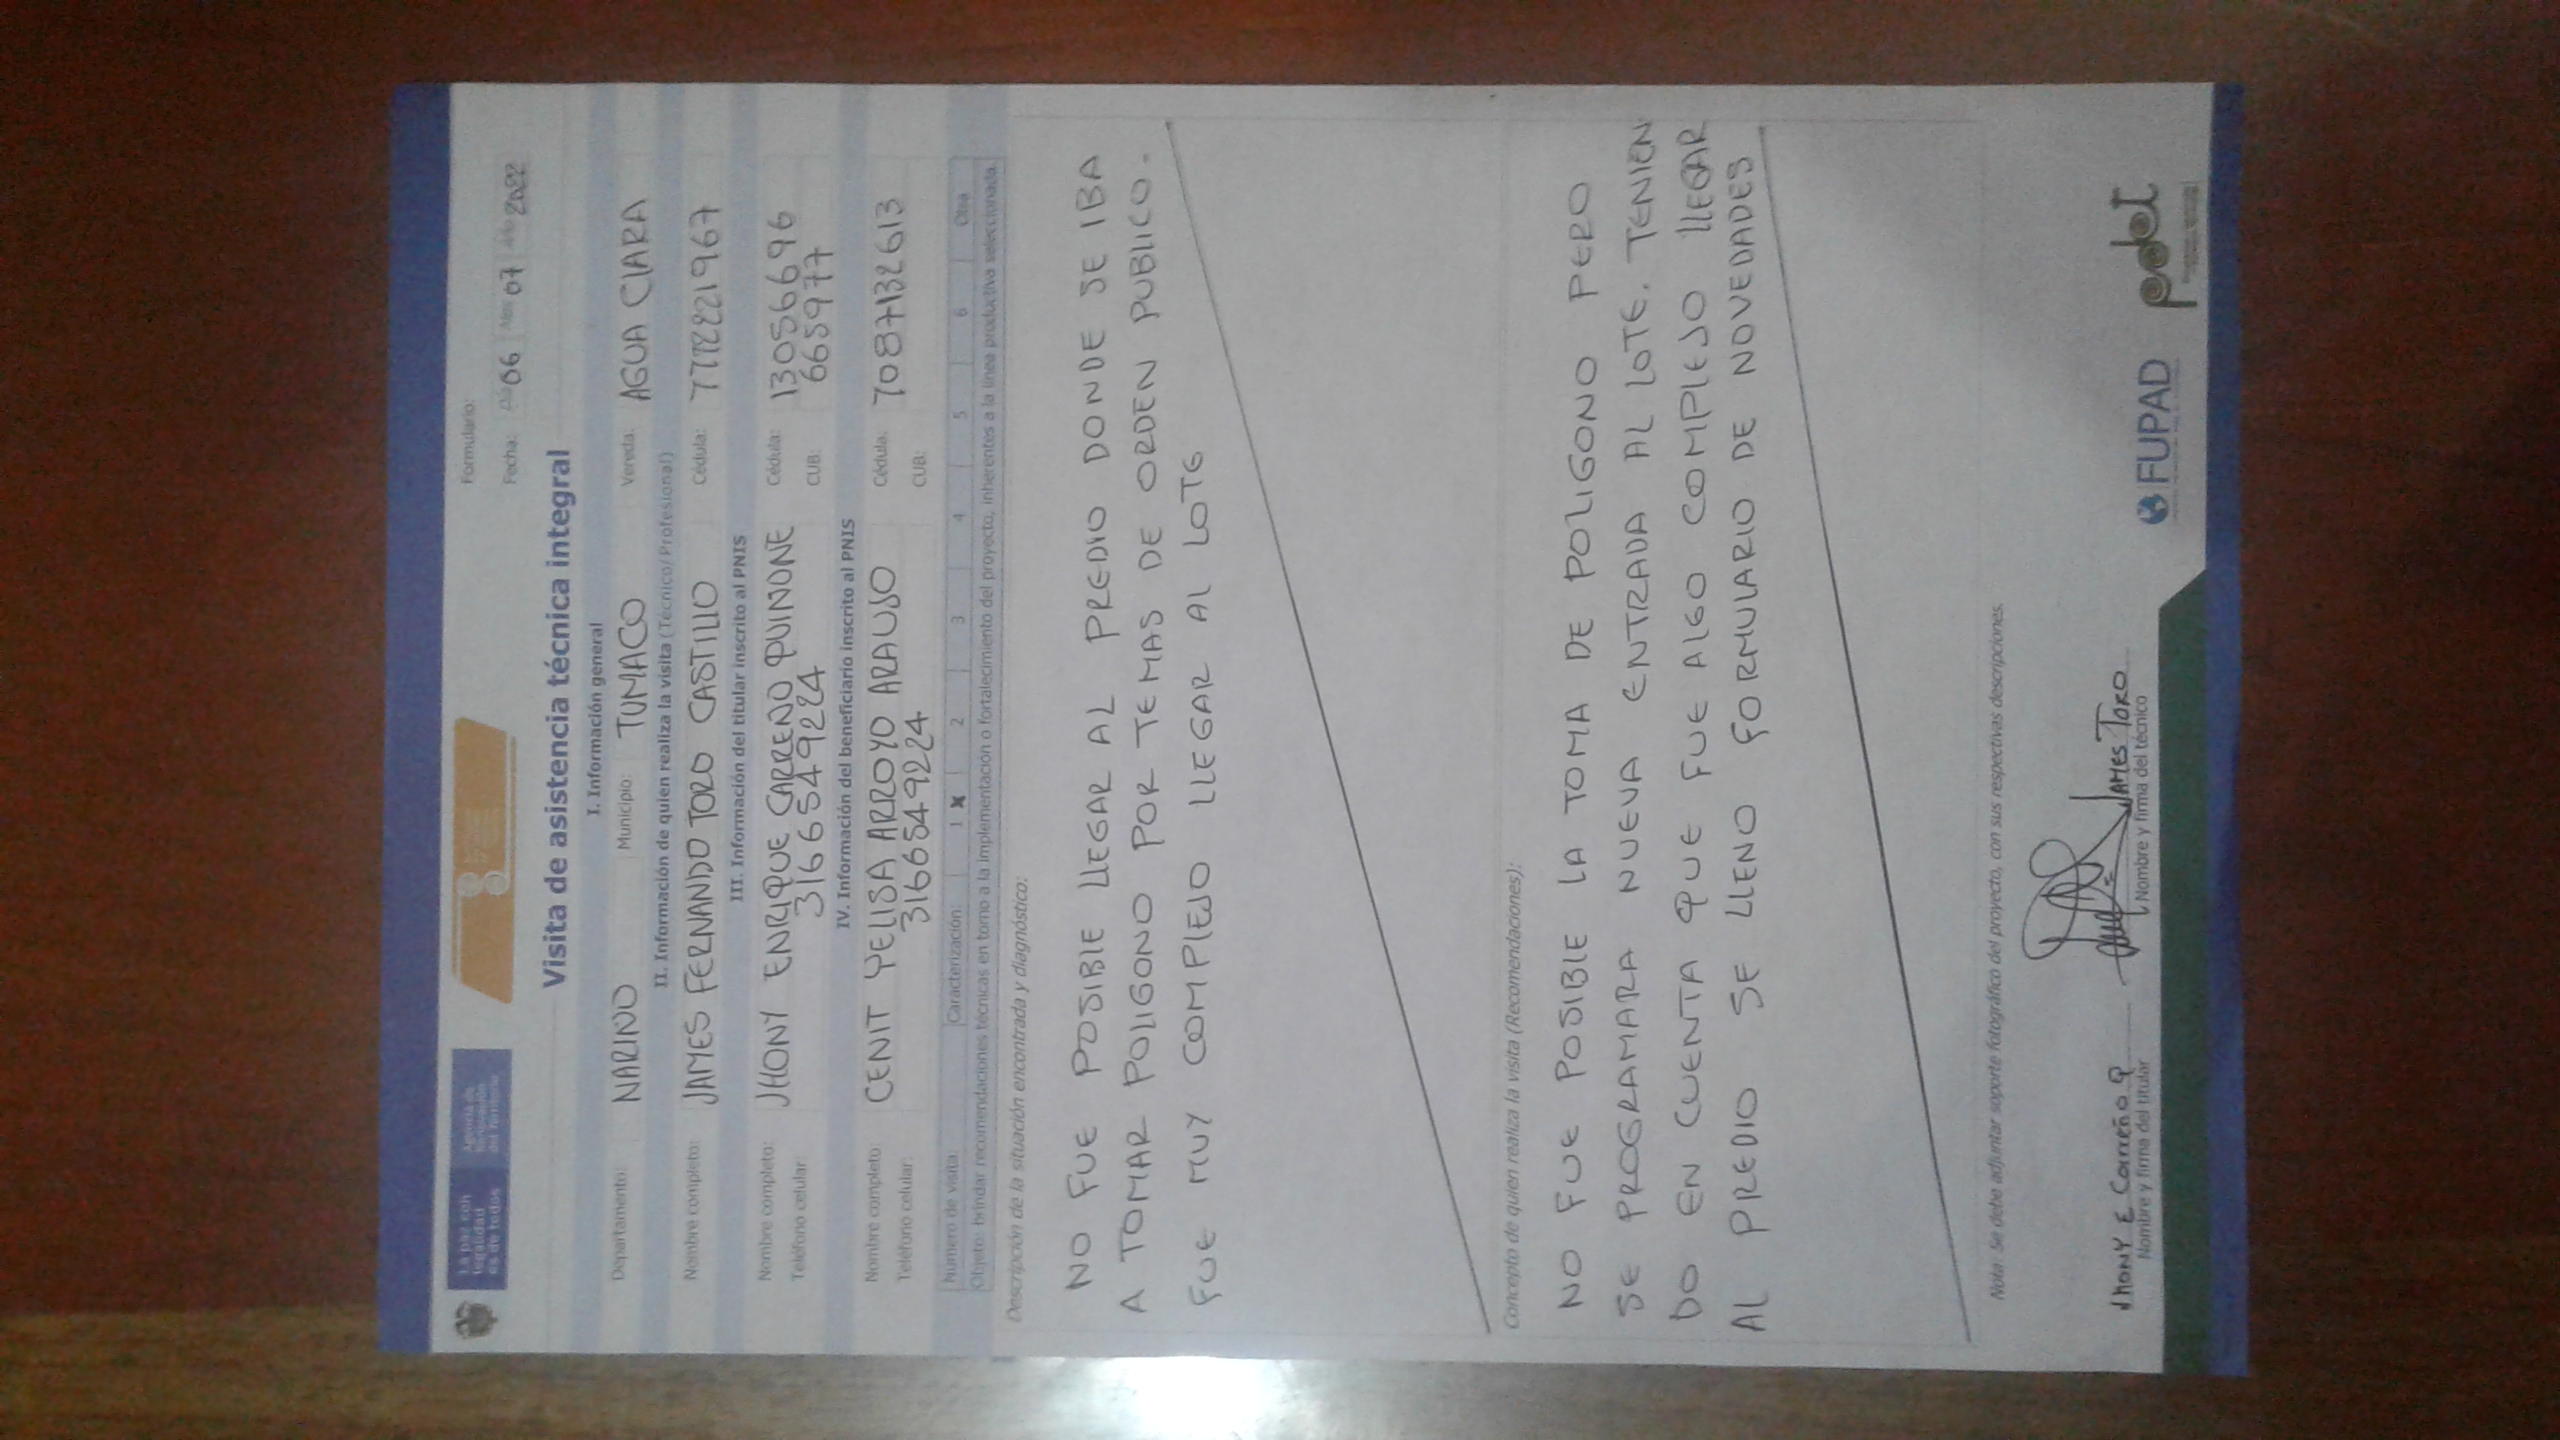 La paz con
legalidad
es de todos
Agencia de
Renovación
del Territorio
Formulario:
Fecha: Día 06 Mes 07 Año 2022
Visita de asistencia técnica integral
I. Información general
Departamento: NARINO Municipio: TUMACO Vereda: AGUA CLARA
II. Información de quien realiza la visita (Técnico/Profesional)
Nombre completo: JAMES FERNANDO TORO CASTILLO Cédula:
III. Información del titular inscrito al PNIS
Nombre completo: JHONY ENRIQUE CARRENO QUINONE Cédula: 13056696
Teléfono celular: 3166549224 CUB: 665977
IV. Información del beneficiario inscrito al PNIS
Nombre completo CENIT YELISA ARROYO ARAUJO Cédula:
Teléfono celular: 3166549224 CUB:
Número de visita: Caracterización: 1 X 2 3 4 5 6 Otra
Objeto: brindar recomendaciones técnicas en torno a la implementación o fortalecimiento del proyecto, inherentes a la línea productiva seleccionada.
Descripción de la situación encontrada y diagnóstico:
NO FUE POSIBLE LLEGAR AL PREDIO DONDE SE IBA
A TOMAR POLIGONO POR TEMAS DE ORDEN PUBLICO.
FUE MUY COMPLEJO LLEGAR AL LOTE
Concepto de quien realiza la visita (Recomendaciones):
NO FUE POSIBLE LA TOMA DE POLIGONO PERO
SE PROGRAMARA NUEVA ENTRADA AL LOTE. TENIEN
DO EN CUENTA QUE FUE ALGO COMPLEJO LLEGAR
AL PREDIO SE LLENO FORMULARIO DE NOVEDADES
Nota: Se debe adjuntar soporte fotográfico del proyecto, con sus respectivas descripciones.
JhONY E Carreño Q JAMES TORO
Nombre y firma del titular Nombre y firma del técnico
FUPAD
pdet